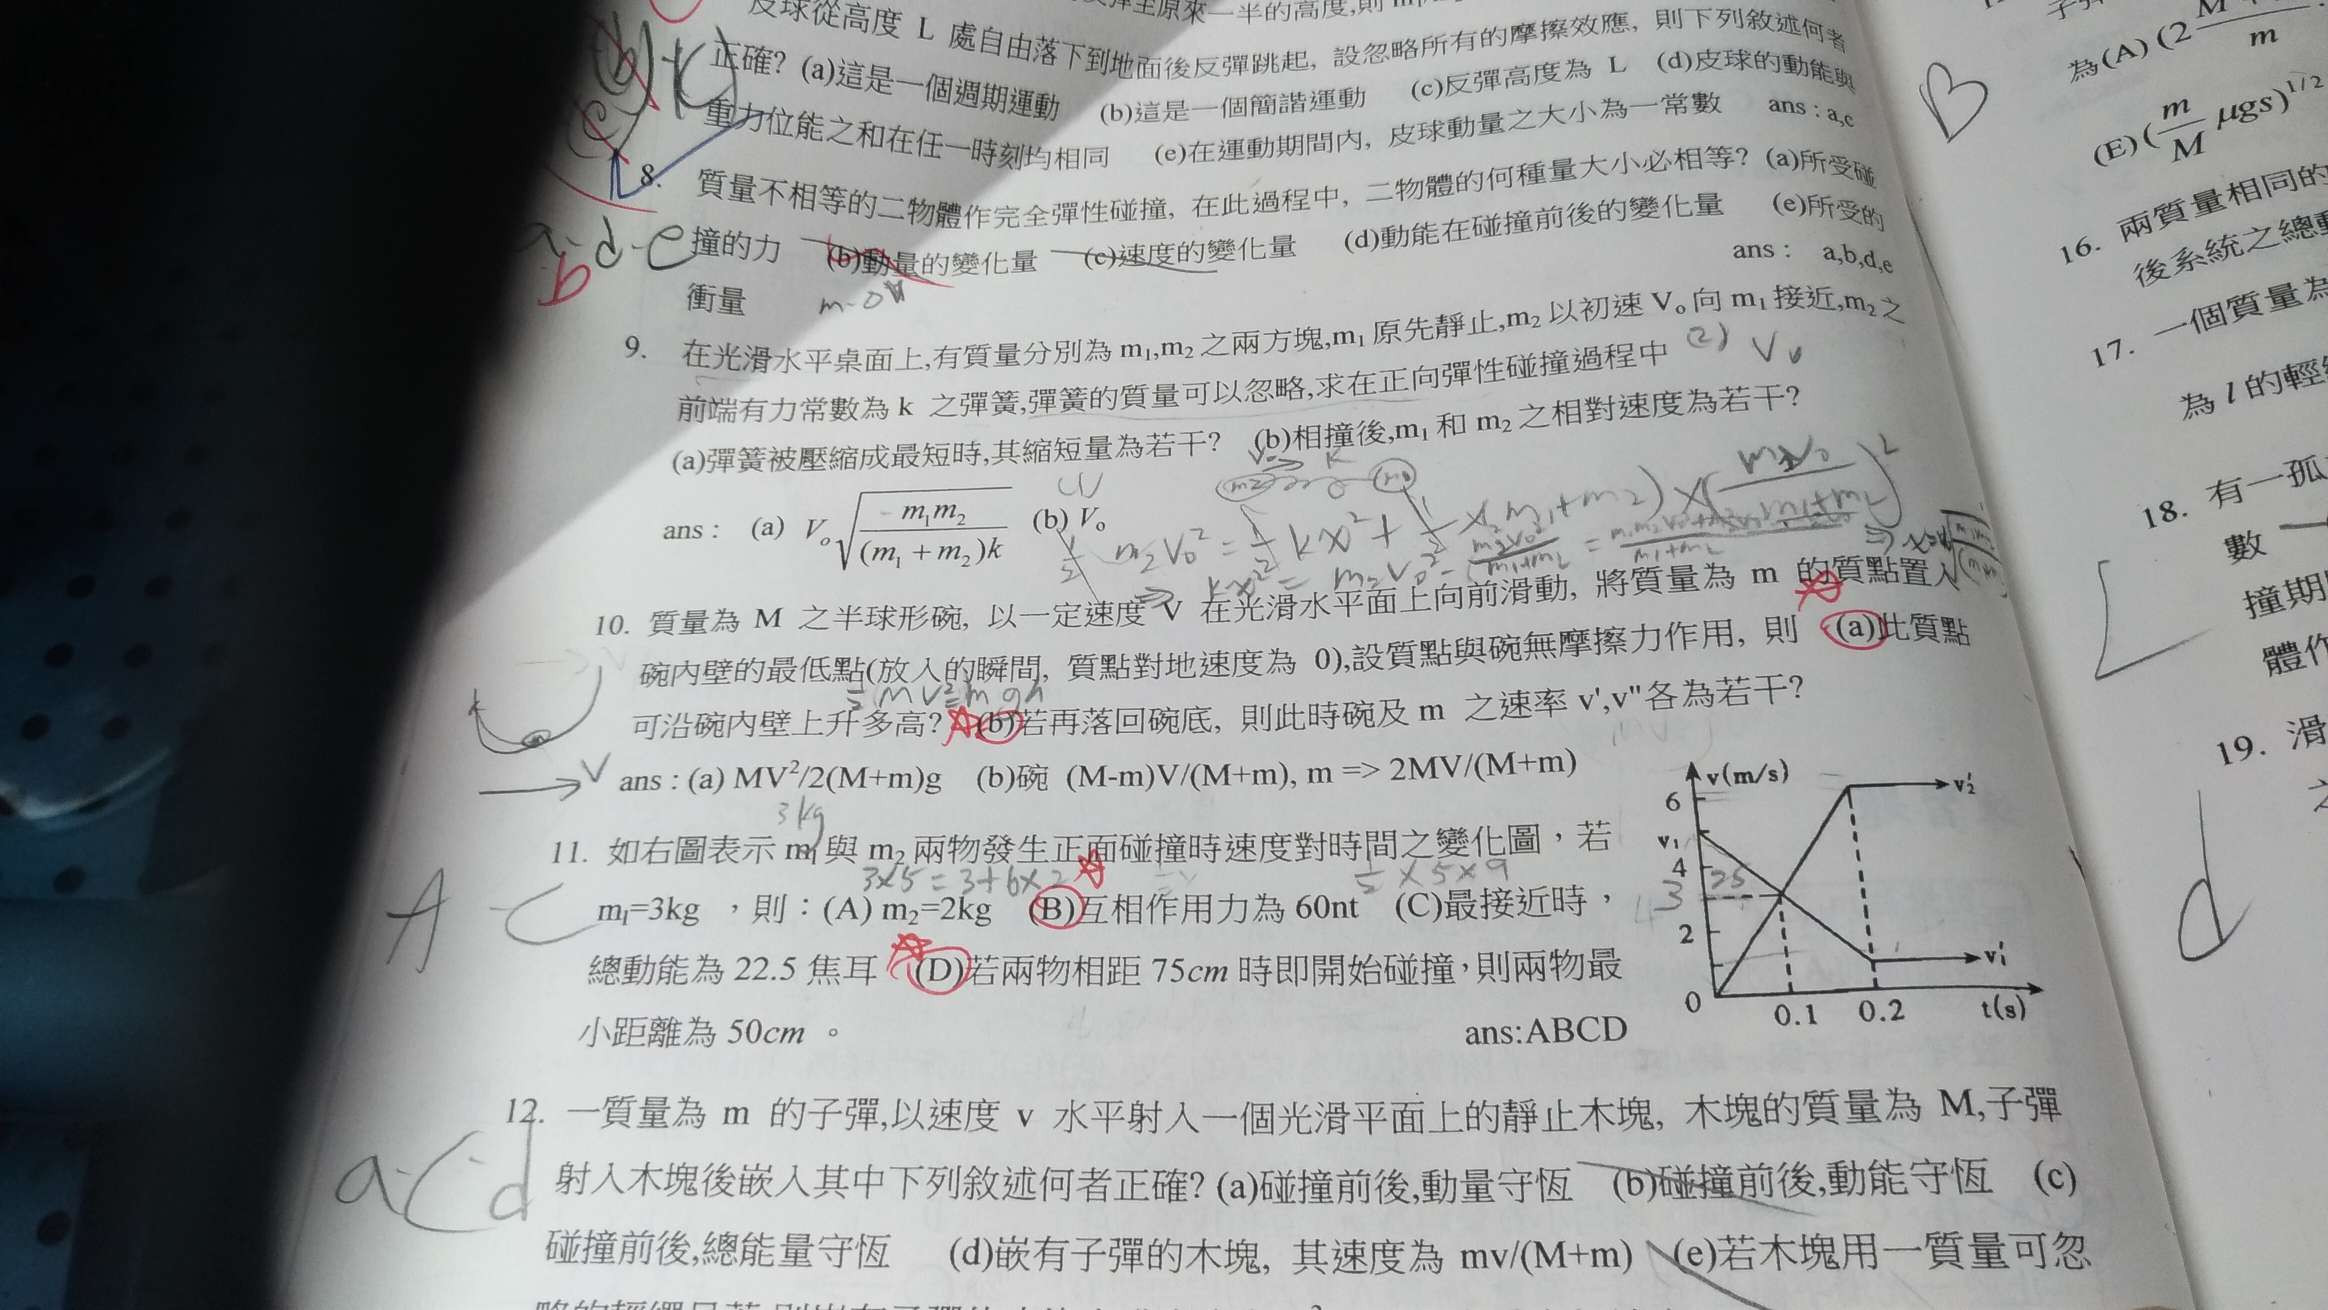 彈至原來一半的高度,則
皮球從高度 L 處自由落下到地面後反彈跳起, 設忽略所有的摩擦效應, 則下列敘述何者
正確? (a)這是一個週期運動 (b)這是一個簡諧運動 (c)反彈高度為 L (d)皮球的動能與
重力位能之和在任一時刻均相同 (e)在運動期間內, 皮球動量之大小為一常數 ans : a,c
8. 質量不相等的二物體作完全彈性碰撞, 在此過程中, 二物體的何種量大小必相等? (a)所受碰
a-d-e 撞的力 (b)動量的變化量 (c)速度的變化量 (d)動能在碰撞前後的變化量 (e)所受的
b
衝量 ans : a,b,d,e
9. 在光滑水平桌面上,有質量分別為 m₁,m₂ 之兩方塊,m₁ 原先靜止,m₂ 以初速 Vₒ 向 m₁ 接近,m₂ 之
前端有力常數為 k 之彈簧,彈簧的質量可以忽略,求在正向彈性碰撞過程中 (2) V₀
(a)彈簧被壓縮成最短時,其縮短量為若干? (b)相撞後,m₁ 和 m₂ 之相對速度為若干?
ans : (a) Vₒ√(m₁m₂/((m₁ + m₂)k)) (b) Vₒ
½ m₂V₀² = ½ kx² + ½ × (m₁+m₂) × (m₂V₀/(m₁+m₂))²
10. 質量為 M 之半球形碗, 以一定速度 V 在光滑水平面上向前滑動, 將質量為 m 的質點置入
碗內壁的最低點(放入的瞬間, 質點對地速度為 0),設質點與碗無摩擦力作用, 則 (a)此質點
½MV²=mgh
可沿碗內壁上升多高? (b)若再落回碗底, 則此時碗及 m 之速率 v',v"各為若干?
V
ans : (a) MV²/2(M+m)g (b)碗 (M-m)V/(M+m), m => 2MV/(M+m)
3kg
11. 如右圖表示 m₁ 與 m₂ 兩物發生正面碰撞時速度對時間之變化圖，若
3×5=3+6×2 ½×5×9
A-C m₁=3kg ，則：(A) m₂=2kg (B)互相作用力為 60nt (C)最接近時，
總動能為 22.5 焦耳 (D)若兩物相距 75cm 時即開始碰撞，則兩物最
小距離為 50cm 。 ans:ABCD
v(m/s)
6
v₂'
v₁
4
3
2
v₁'
0
0.1 0.2 t(s)
12. 一質量為 m 的子彈,以速度 v 水平射入一個光滑平面上的靜止木塊, 木塊的質量為 M,子彈
a-c-d 射入木塊後嵌入其中下列敘述何者正確? (a)碰撞前後,動量守恆 (b)碰撞前後,動能守恆 (c)
碰撞前後,總能量守恆 (d)嵌有子彈的木塊, 其速度為 mv/(M+m) (e)若木塊用一質量可忽
B
為(A) (2
m
(E) (m/M μgs)^1/2
16. 兩質量相同的
後系統之總動
17. 一個質量為
為 l 的輕
18. 有一孤
數
撞期
體作
19. 滑
d